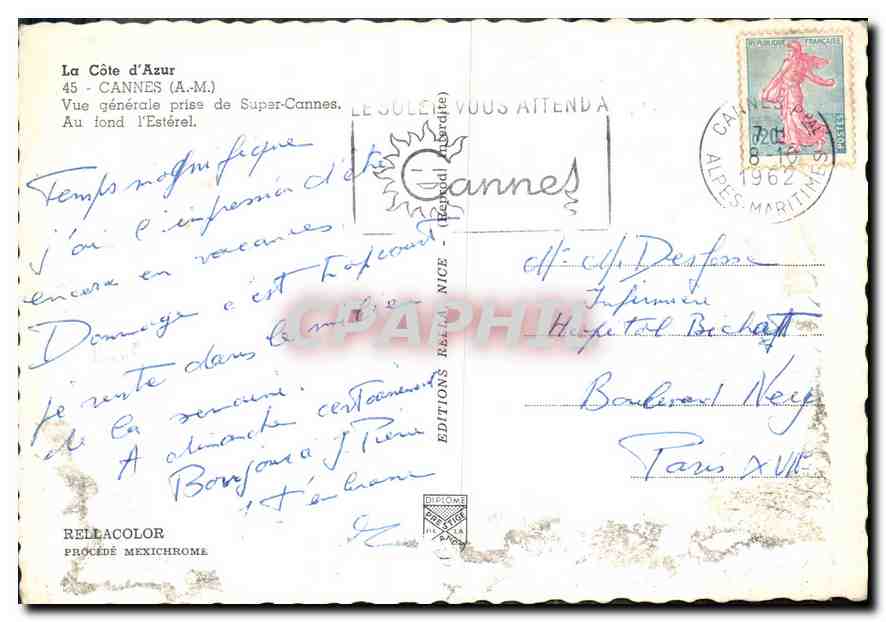 La Côte d'Azur
45 - CANNES (A.-M.)
Vue générale prise de Super-Cannes.
Au fond l'Estérel.
Temps magnifique
j'ai l'impression d'être
encore en vacances.
Dommage c'est trop court
je rentre dans le milieu
de la semaine.
A dimanche certainement
Bonjour à J. Pierre
Je t'embrasse
RELLACOLOR
PROCÉDÉ MEXICHROME
EDITIONS RELLA, NICE - (Reprod. interdite)
DIPLOME
PRESTIGE
DE LA
LE SOLEIL VOUS ATTEND A
Cannes
REPUBLIQUE FRANÇAISE
0,20
POSTES
CANNES PPAL
7 H
8-10
1962
ALPES-MARITIMES
Infirmière
Hopital Bichat
Boulevard Ney
Paris XVIIe
CPAPHIL